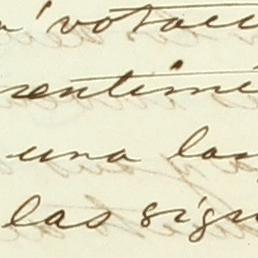 votaci
sentimi
una la
las sigu